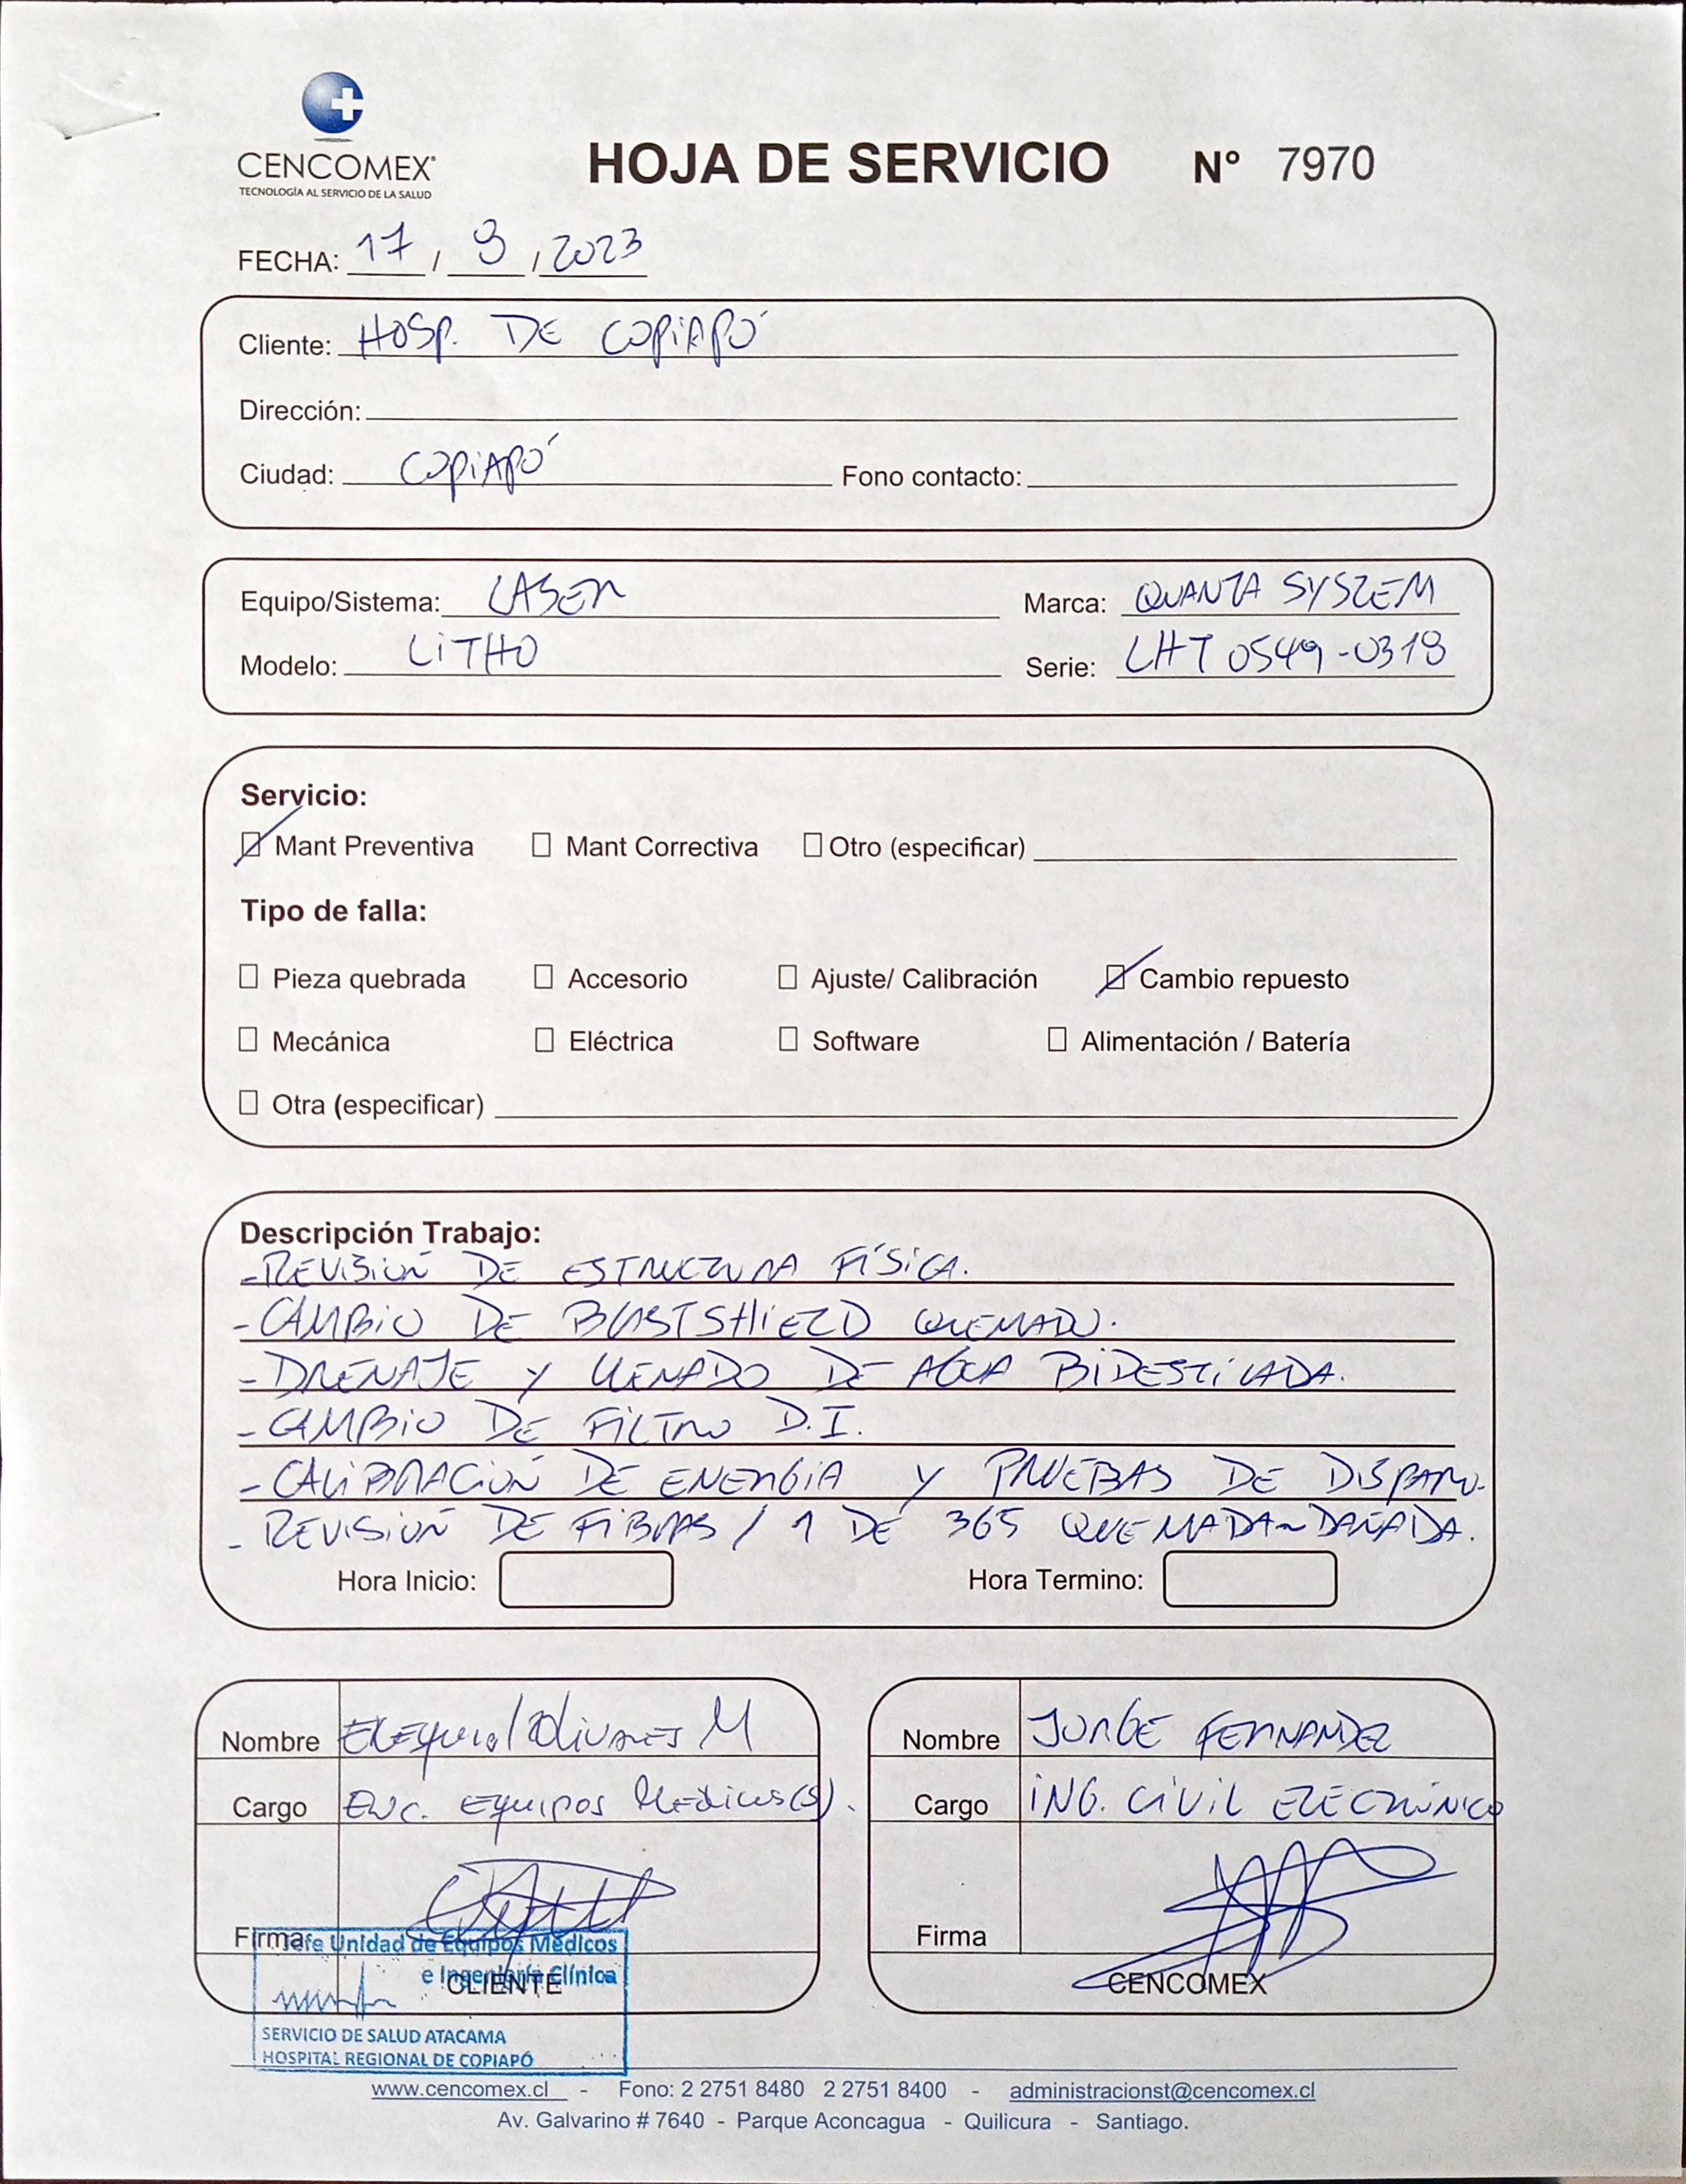 CENCOMEX
TECNOLOGÍA AL SERVICIO DE LA SALUD
HOJA DE SERVICIO N° 7970
FECHA: 17 / 9 / 2023
Cliente: HOSP. DE COPIAPÓ
Dirección:
Ciudad: COPIAPÓ Fono contacto:
Equipo/Sistema: LASER Marca: QUANTA SYSTEM
Modelo: LITHO Serie: LHT 0549-0318
Servicio:
Mant Preventiva Mant Correctiva Otro (especificar)
Tipo de falla:
Pieza quebrada Accesorio Ajuste/ Calibración Cambio repuesto
Mecánica Eléctrica Software Alimentación / Batería
Otra (especificar)
Descripción Trabajo:
- REVISIÓN DE ESTRUCTURA FÍSICA.
- CAMBIO DE BLASTSHIELD QUEMADO.
- DRENAJE Y LLENADO DE AGUA BIDESTILADA.
- CAMBIO DE FILTRO D.I.
- CALIBRACIÓN DE ENERGIA Y PRUEBAS DE DISPARO.
- REVISIÓN DE FIBRAS / 1 DE 365 QUEMADA - DAÑADA.
Hora Inicio: Hora Termino:
Nombre Olivares M
Cargo Enc. Equipos Medicos (S).
Firma
CLIENTE
Jefe Unidad de Equipos Médicos
e Ingeniería Clínica
SERVICIO DE SALUD ATACAMA
HOSPITAL REGIONAL DE COPIAPÓ
Nombre JORGE FERNANDEZ
Cargo ING. CIVIL ELECTRÓNICO
Firma
CENCOMEX
www.cencomex.cl - Fono: 2 2751 8480 2 2751 8400 - administracionst@cencomex.cl
Av. Galvarino # 7640 - Parque Aconcagua - Quilicura - Santiago.